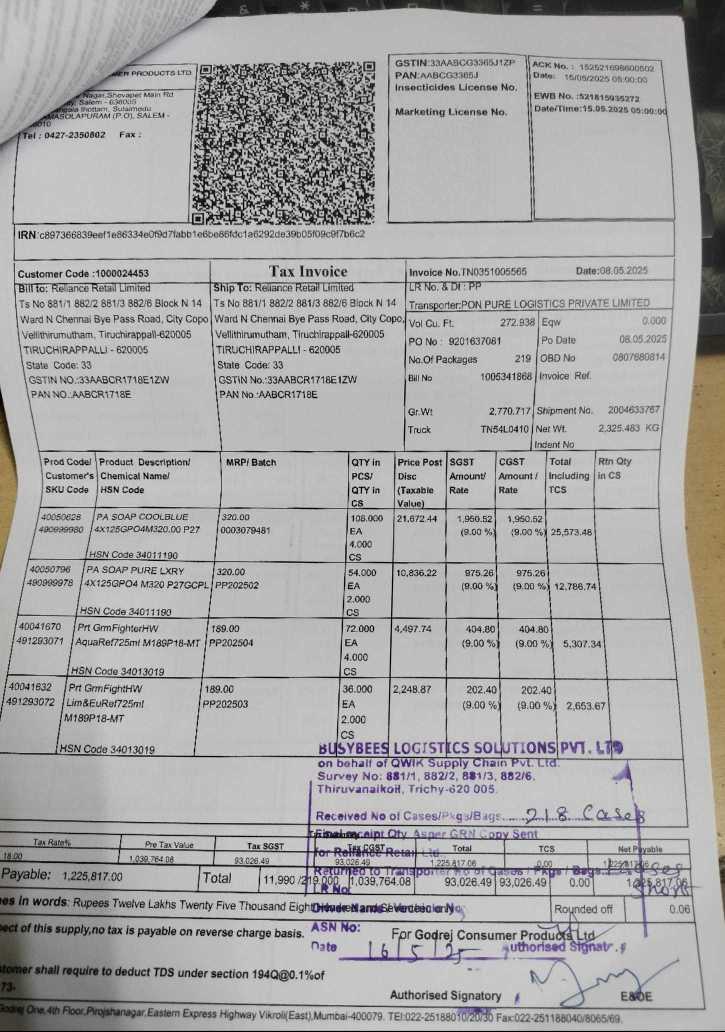 ER PRODUCTS LTD
Nagar,Shevapet Main Rd
Salem - 636005
thottam, Sulaimedu
MASOLAPURAM (P.O), SALEM -
Tel : 0427-2350802 Fax :
GSTIN:33AABCG3365J1ZP
PAN:AABCG3365J
Insecticides License No.
Marketing License No.
ACK No. : 152521698600502
Date: 15/05/2025 05:00:00
EWB No. :521815935272
Date/Time:15.05.2025 05:00:00
IRN:c897366839eef1e86334e0f9d7fabb1e6be86fdc1a6292de39b05f09c9f7b6c2
Customer Code :1000024453
Tax Invoice
Invoice No.TN0351005565 Date:08.05.2025
Bill to: Reliance Retail Limited
Ts No 881/1 882/2 881/3 882/6 Block N 14
Ward N Chennai Bye Pass Road, City Copo
Vellithirumutham, Tiruchirappalli-620005
TIRUCHIRAPPALLI - 620005
State Code: 33
GSTIN NO.:33AABCR1718E1ZW
PAN NO.:AABCR1718E
Ship To: Reliance Retail Limited
Ts No 881/1 882/2 881/3 882/6 Block N 14
Ward N Chennai Bye Pass Road, City Copo,
Vellithirumutham, Tiruchirappalli-620005
TIRUCHIRAPPALLI - 620005
State Code: 33
GSTIN NO.:33AABCR1718E1ZW
PAN No.:AABCR1718E
LR No. & Dt : PP
Transporter:PON PURE LOGISTICS PRIVATE LIMITED
Vol Cu. Ft. 272.938 Eqw 0.000
PO No : 9201637081 Po Date 08.05.2025
No.Of Packages 219 OBD No 0807680814
Bill No 1005341868 Invoice Ref.
Gr.Wt 2,770.717 Shipment No. 2004633767
Truck TN54L0410 Net Wt. 2,325.483 KG
Indent No
Prod Code/ Product Description/ MRP/ Batch QTY in Price Post SGST CGST Total Rtn Qty
Customer's Chemical Name/ PCS/ Disc Amount/ Amount / Including in CS
SKU Code HSN Code QTY in (Taxable Rate Rate TCS
CS Value)
40050628 PA SOAP COOLBLUE 320.00 108.000 21,672.44 1,950.52 1,950.52
490999980 4X125GPO4M320.00 P27 0003079481 EA (9.00 %) (9.00 %) 25,573.48
4.000
HSN Code 34011190 CS
40050796 PA SOAP PURE LXRY 320.00 54.000 10,836.22 975.26 975.26
490999978 4X125GPO4 M320 P27GCPL PP202502 EA (9.00 %) (9.00 %) 12,786.74
2.000
HSN Code 34011190 CS
40041670 Prt GrmFighterHW 189.00 72.000 4,497.74 404.80 404.80
491293071 AquaRef725ml M189P18-MT PP202504 EA (9.00 %) (9.00 %) 5,307.34
4.000
HSN Code 34013019 CS
40041632 Prt GrmFightHW 189.00 36.000 2,248.87 202.40 202.40
491293072 Lim&EuRef725ml PP202503 EA (9.00 %) (9.00 %) 2,653.67
M189P18-MT 2.000
CS
HSN Code 34013019
BUSYBEES LOGISTICS SOLUTIONS PVT. LTD
on behalf of QWIK Supply Chain Pvt. Ltd.
Survey No: 881/1, 882/2, 881/3, 882/6.
Thiruvanaikoil, Trichy-620 005.
Received No of Cases/Pkgs/Bags 218 Cases
Final receipt Qty Asper GRN Copy Sent
for Reliance Retail Ltd.
Tax Rate% Pre Tax Value Tax SGST Tax CGST Total TCS Net Payable
18.00 1,039,764.08 93,026.49 93,026.49 1,225,817.06 0.00
Returned to Transporter No of Cases / Pkgs / Bags
Payable: 1,225,817.00 Total 11,990 /219.000 1,039,764.08 93,026.49 93,026.49 0.00
LR No:
Short
es in words: Rupees Twelve Lakhs Twenty Five Thousand Eight
Rounded off 0.06
ect of this supply,no tax is payable on reverse charge basis.
ASN No:
For Godrej Consumer Products Ltd
Date 16/5/25 Authorised Signatr.
stomer shall require to deduct TDS under section 194Q@0.1%of
73-
Authorised Signatory E&OE
Godrej One,4th Floor,Pirojshanagar,Eastern Express Highway Vikroli(East),Mumbai-400079. TEl:022-25188010/20/30 Fax:022-251188040/8065/69.